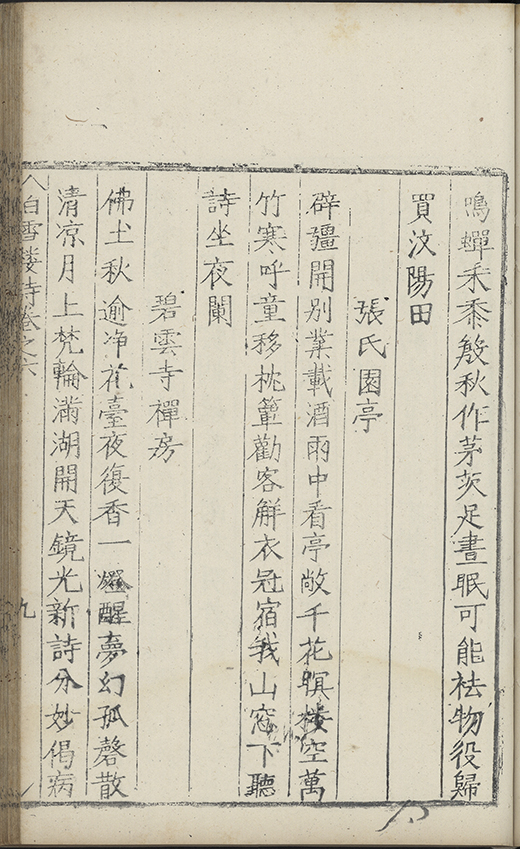 鳴蟬禾黍殷秋作茅茨足晝眠可能祛物役歸
買汶陽田
張氏園亭
辟疆開別業載酒雨中看亭敞千花暝樓空萬
竹寒呼童移枕簟勸客解衣冠宿我山窓下聽
詩坐夜闌
碧雲寺禪房
佛土秋逾净花臺夜復香一醒夢幻孤磬散
清凉月上梵輪滿湖開天鏡光新詩分妙偈病
白雪楼诗卷之六
九